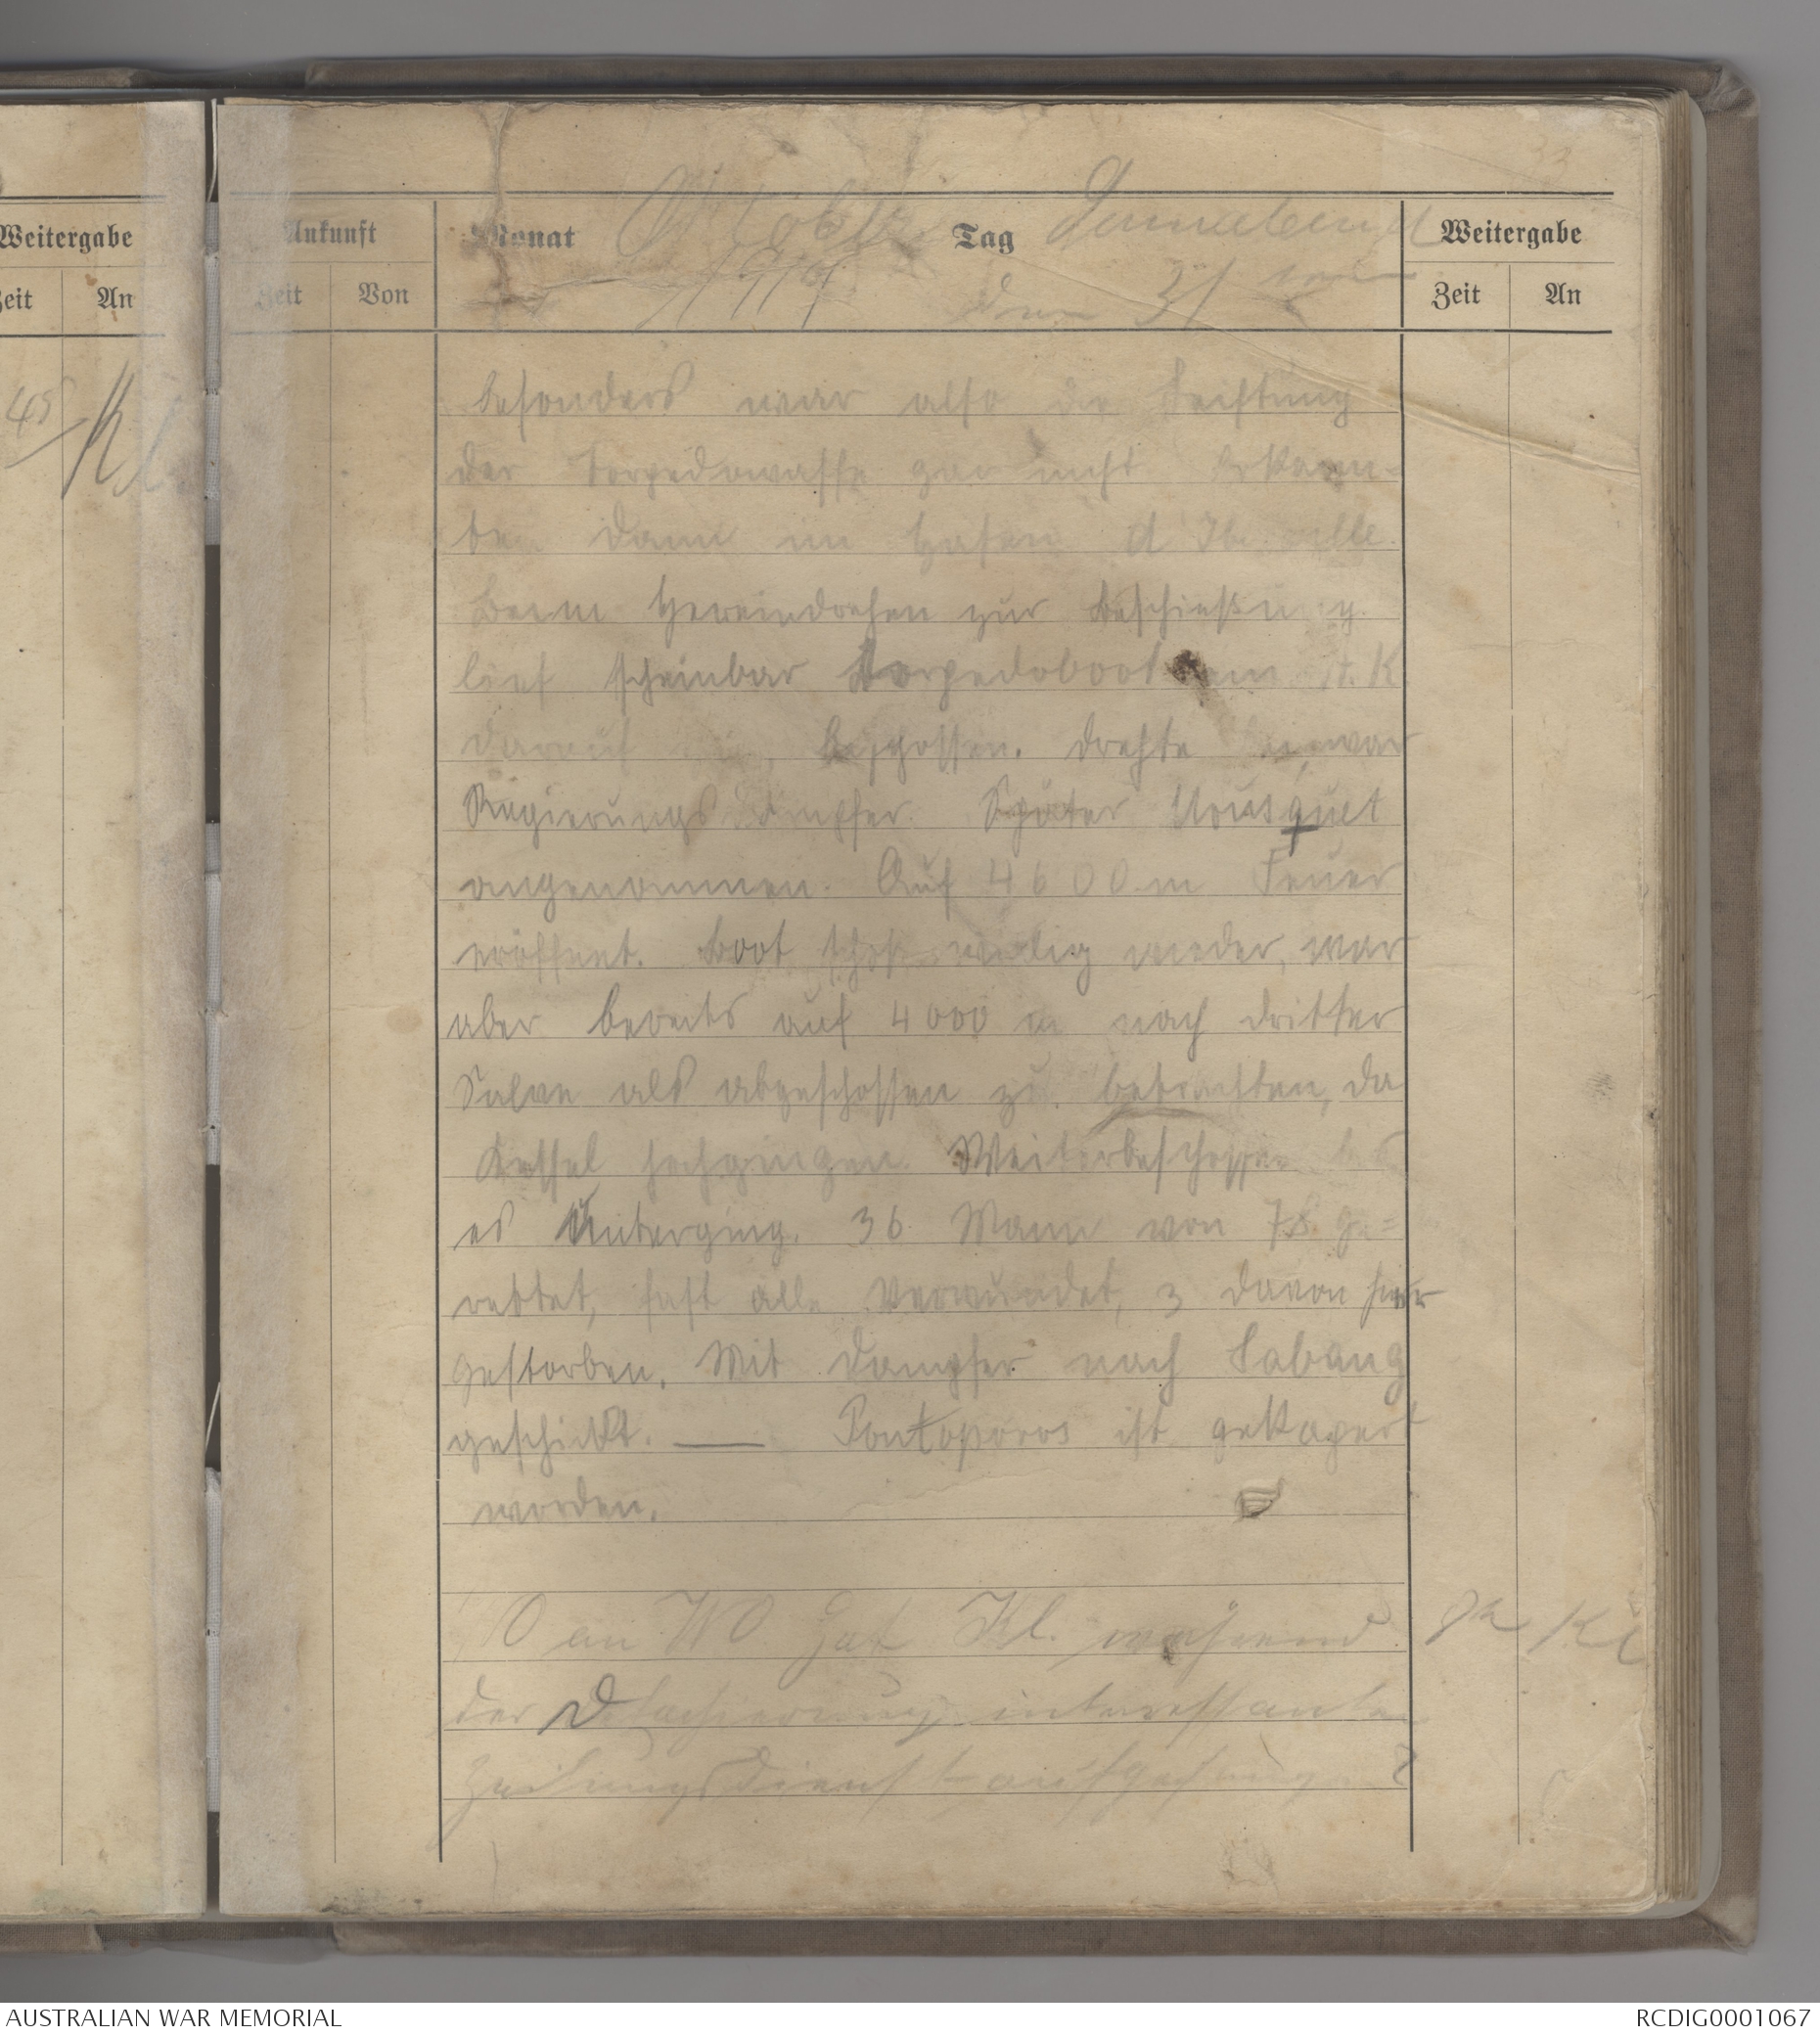 33
Weitergabe
Zeit
An
45
Kl
Ankunft
Zeit
Von
Monat Oktober 1914
Tag Sonnabend
den 31
Weitergabe
Zeit
An
besonders war also die Leistung
der Torpedowaffe gar nicht
dann im Hafen d'Iberville.
Beim Hereindrehen zur Beschießung
lief scheinbar Torpedoboot ein A.K.
darauf beschossen. drehte war
Regierungsdampfer. Später Mousquet
angenommen. Auf 4600 m Feuer
eröffnet. Boot schoß wieder, war
aber bereits auf 4000 m nach dritter
Salve als abgeschossen zu betrachten, da
Kessel hochgingen. Weiterbeschossen bis
es unterging. 36 Mann von 78 ge=
rettet, fast alle verwundet, 3 davon hier
gestorben. Mit Dampfer nach Sabang
geschickt. — Pontoporos ist gekapert
worden.
O an WO Hat Kl. während
der Detachierung interessante
Zeitungsdienst aufgefangen ?
Kl
AUSTRALIAN WAR MEMORIAL
RCDIG0001067